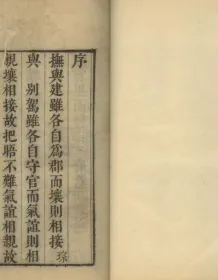 序
撫與建雖各自為郡而壤則相接
與 別駕雖各自守官而氣誼則相
親壤相接故把晤不難氣誼相親故